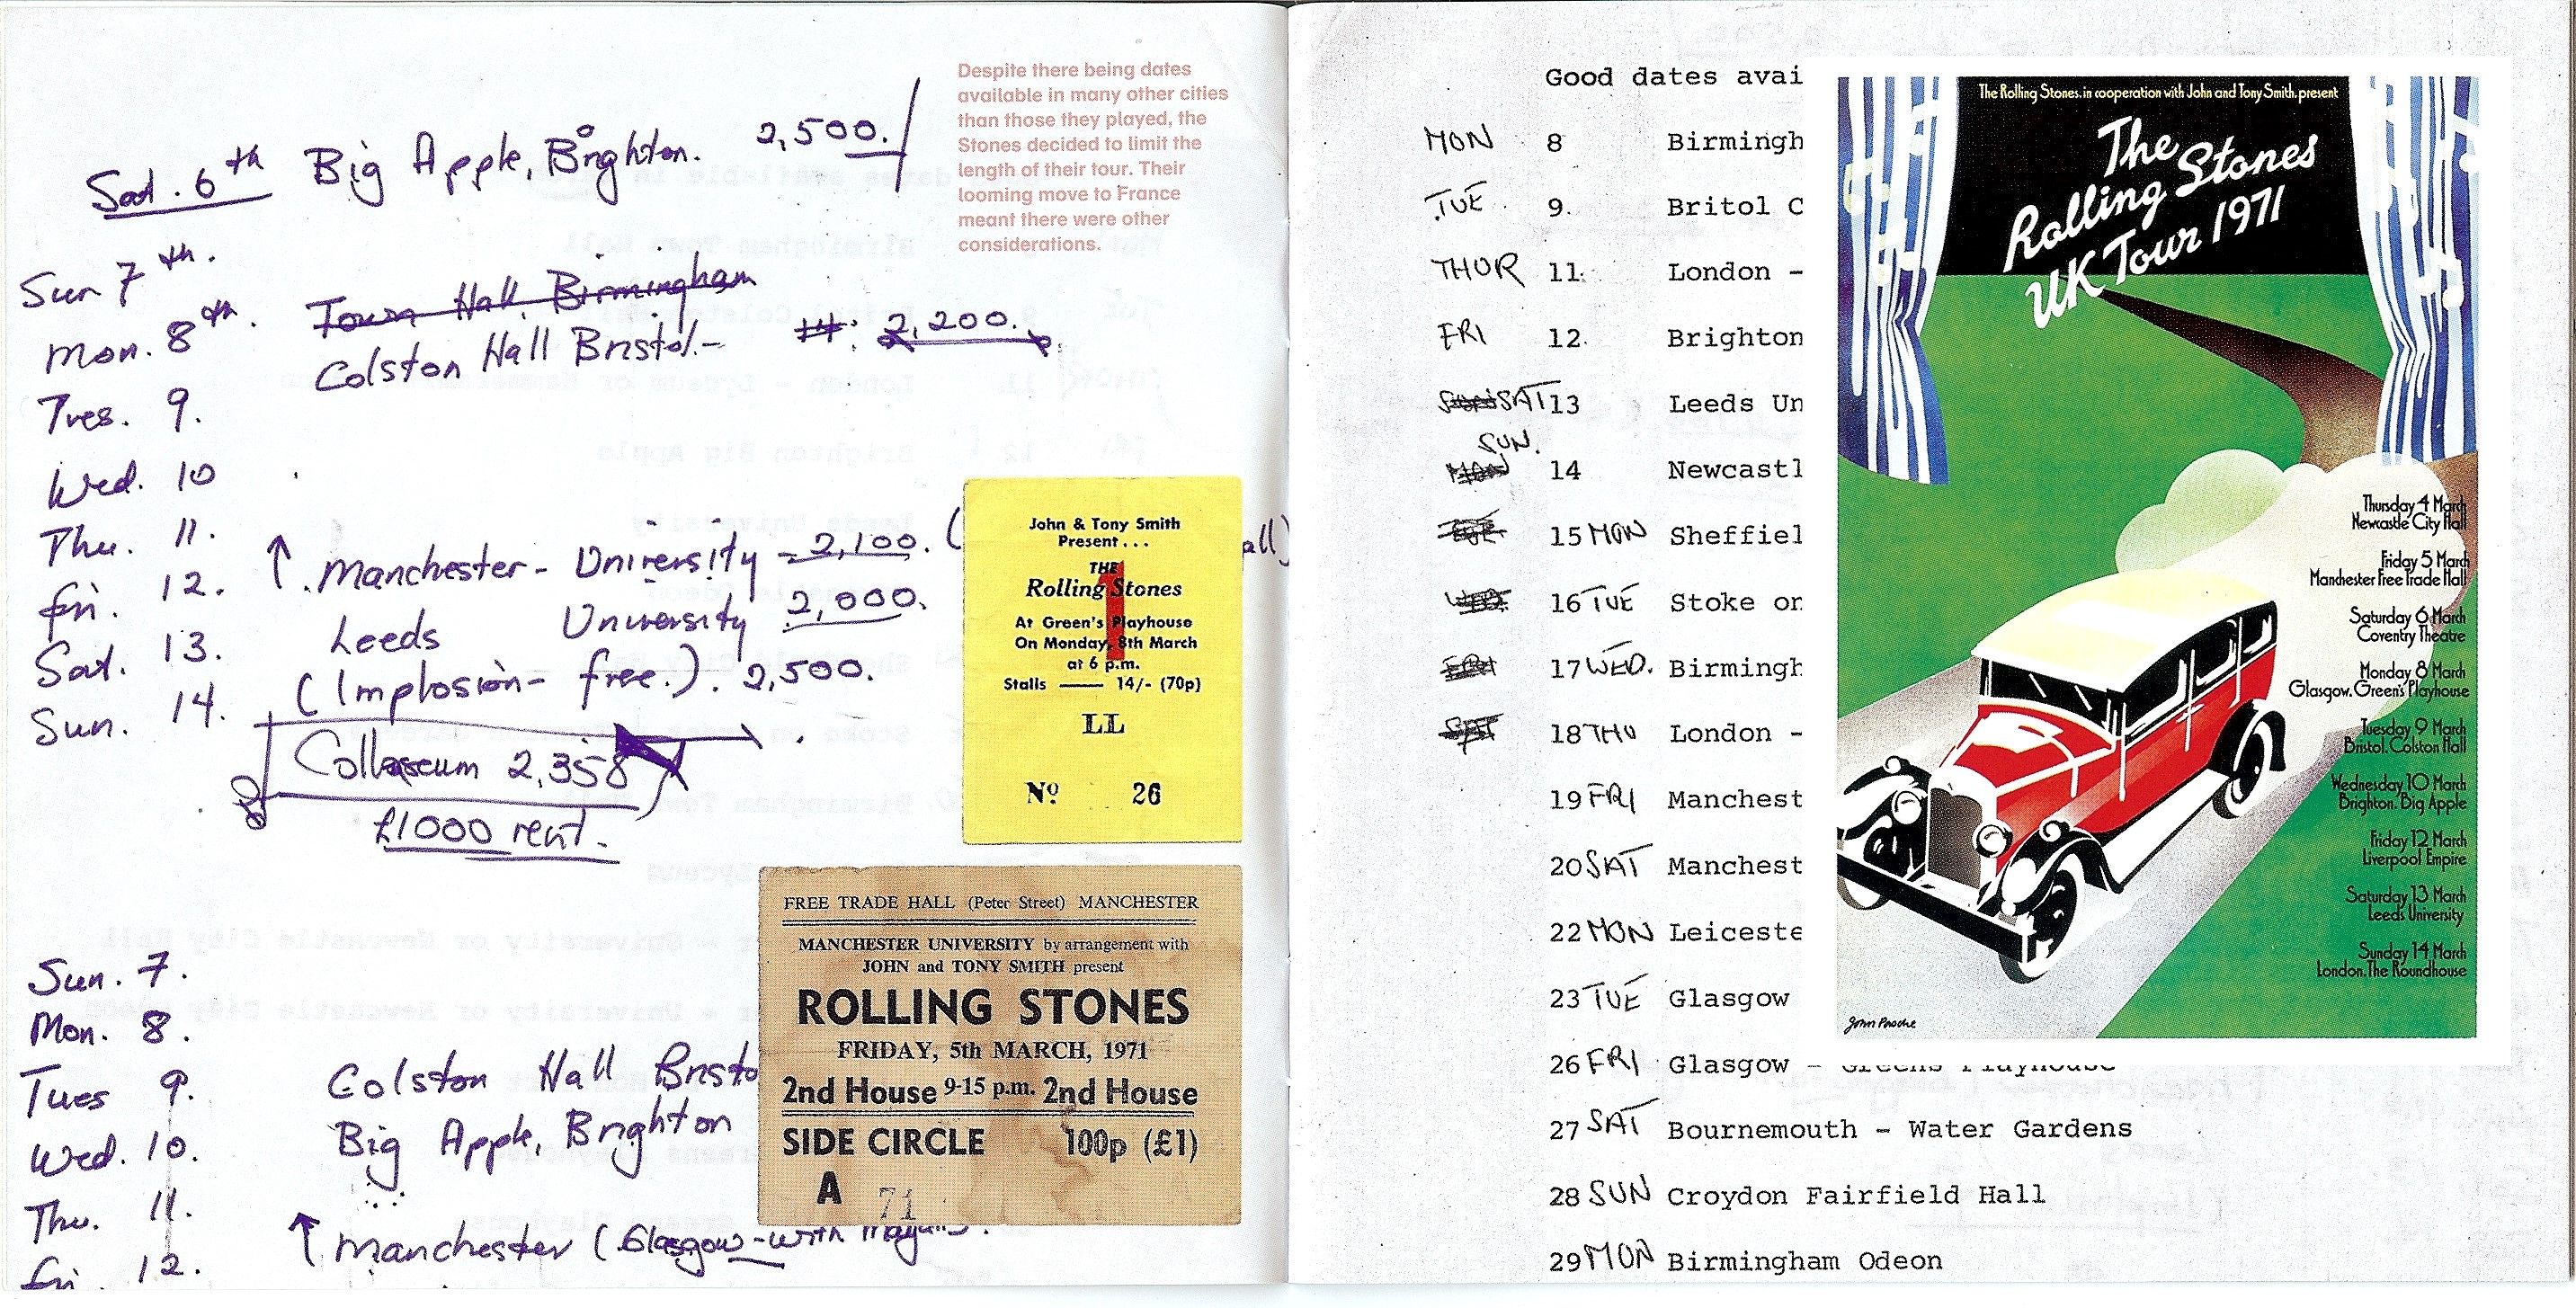 Sat. 6th Big Apple, Brighton. 2,500.
Sun 7th.
Mon. 8th. Town Hall, Birmingham
Colston Hall Bristol.- 2,200.
Tues. 9.
Wed. 10
Thu. 11.
Manchester - University - 2,100. (
all)
Fri. 12.
Leeds University 2,000.
Sat. 13.
(Implosion - free.). 2,500.
Sun. 14.
Collosseum 2,358
£1000 rent.
Sun. 7.
Mon. 8.
Tues 9. Colston Hall Bristo
Wed. 10. Big Apple, Brighton
Thu. 11.
Manchester (Glasgow - with
Fri 12.
Despite there being dates
available in many other cities
than those they played, the
Stones decided to limit the
length of their tour. Their
looming move to France
meant there were other
considerations.
John & Tony Smith
Present...
THE
Rolling Stones
1
At Green's Playhouse
On Monday, 8th March
at 6 p.m.
Stalls — 14/- (70p)
LL
Nº 26
FREE TRADE HALL (Peter Street) MANCHESTER
MANCHESTER UNIVERSITY by arrangement with
JOHN and TONY SMITH present
ROLLING STONES
FRIDAY, 5th MARCH, 1971
2nd House 9-15 p.m. 2nd House
SIDE CIRCLE 100p (£1)
A 71
Good dates avai
MON 8 Birmingh
TUE. 9. Britol C
THUR 11. London -
FRI 12. Brighton
SAT 13 Leeds Un
SUN. 14 Newcastl
15 MON Sheffiel
16 TUE Stoke on
17 WED. Birmingh
18 THU London -
19 FRI Manchest
20 SAT Manchest
22 MON Leiceste
23 TUE Glasgow
26 FRI Glasgow - Greens Playhouse
27 SAT Bournemouth - Water Gardens
28 SUN Croydon Fairfield Hall
29 MON Birmingham Odeon
The Rolling Stones, in cooperation with John and Tony Smith, present
The
Rolling Stones
UK Tour 1971
Thursday 4 March
Newcastle City Hall
Friday 5 March
Manchester Free Trade Hall
Saturday 6 March
Coventry Theatre
Monday 8 March
Glasgow. Green's Playhouse
Tuesday 9 March
Bristol. Colston Hall
Wednesday 10 March
Brighton. Big Apple
Friday 12 March
Liverpool Empire
Saturday 13 March
Leeds University
Sunday 14 March
London. The Roundhouse
John Pasche